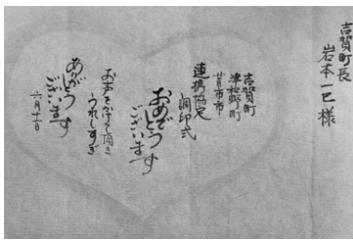 吉賀町長
岩本一巳様
吉賀町
津和野町
廿日市市
連携協定
調印式
おめでとう
ございます
お声をかけて頂き
うれしすぎ
ありがとう
ございます
六月十一日